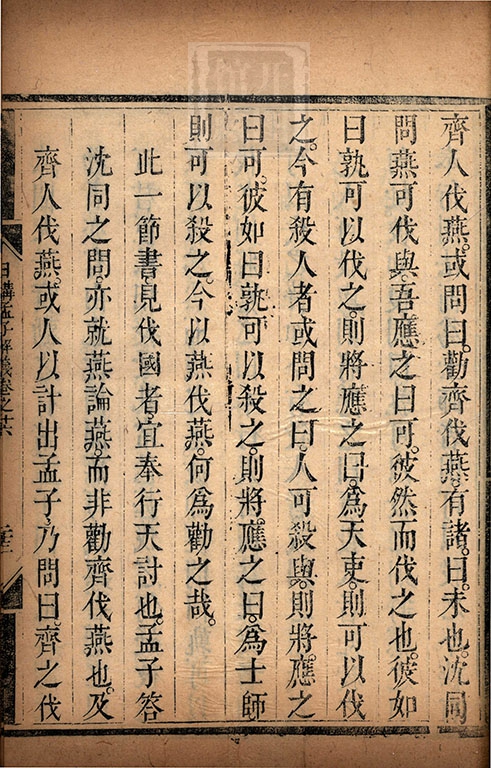 齊人伐燕。或問曰。勸齊伐燕。有諸。曰。未也。沈同
問燕可伐與。吾應之曰。可。彼然而伐之也。彼如
曰孰可以伐之。則將應之曰。爲天吏。則可以伐
之。今有殺人者。或問之曰。人可殺與。則將應之
曰可。彼如曰孰可以殺之。則將應之曰。爲士師
則可以殺之。今以燕伐燕。何爲勸之哉。
此一節書見伐國者宜奉行天討也。孟子答
沈同之問。亦就燕論燕。而非勸齊伐燕也。及
齊人伐燕。或人以計出孟子。乃問曰。齊之伐
日講孟子解義卷之十六